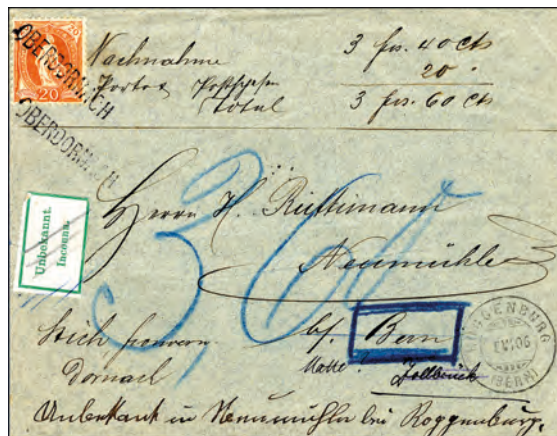 20
OBERDORNACH
OBERDORNACH
Nachnahme 3 frs. 40 cts
Porto & 20 "
total 3 frs. 60 cts
Unbekannt.
Inconnu.
Herrn H. Rüttimann
Neumühle
3,60
bf. Bern
Dornach
Matte? Zollbrück
ROGGENBURG
(BERN)
Unbekannt in Neumühle bei Roggenburg.